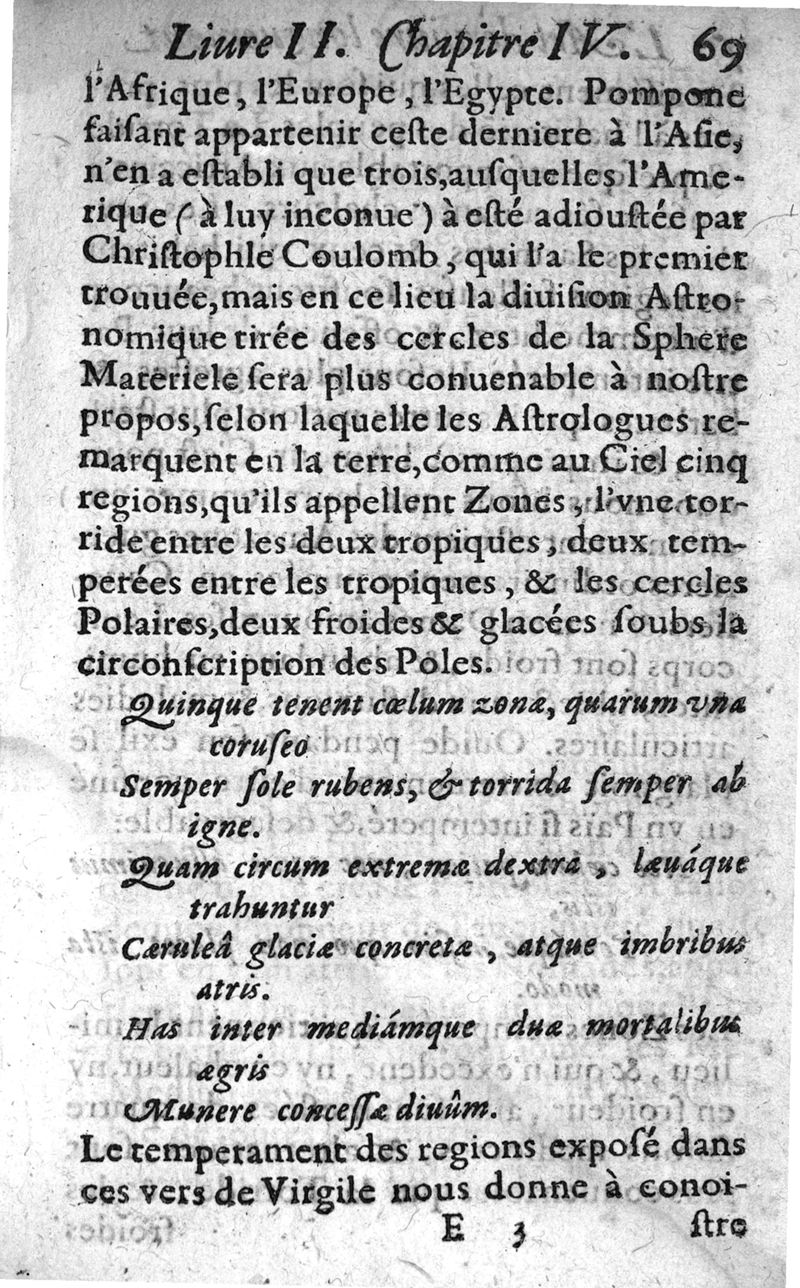 Liure II. Chapitre IV. 69
l'Afrique, l'Europe, l'Egypte. Pompone
faiſant appartenir ceſte derniere à l'Aſie,
n'en a eſtabli que trois,auſquelles l'Ame-
rique (à luy inconue) à eſté adiouſtée par
Chriſtophle Coulomb, qui l'a le premier
trouuée,mais en ce lieu la diuiſion Aſtro-
nomique tirée des cercles de la Sphere
Materiele ſera plus conuenable à noſtre
propos,ſelon laquelle les Aſtrologues re-
marquent en la terre,comme au Ciel cinq
regions,qu'ils appellent Zones, l'vne tor-
ride entre les deux tropiques, deux tem-
perées entre les tropiques, & les cercles
Polaires,deux froides & glacées ſoubs la
circonſcription des Poles.
Quinque tenent cœlum zonæ, quarum vna
coruſeo
Semper ſole rubens, & torrida ſemper ab
igne.
Quam circum extremæ dextrâ, læuáque
trahuntur
Cæruleâ glaciæ concretæ, atque imbribus
atris.
Has inter mediámque duæ mortalibus
ægris
Munere conceſſæ diuûm.
Le temperament des regions expoſé dans
ces vers de Virgile nous donne à conoi-
E 3 ſtre